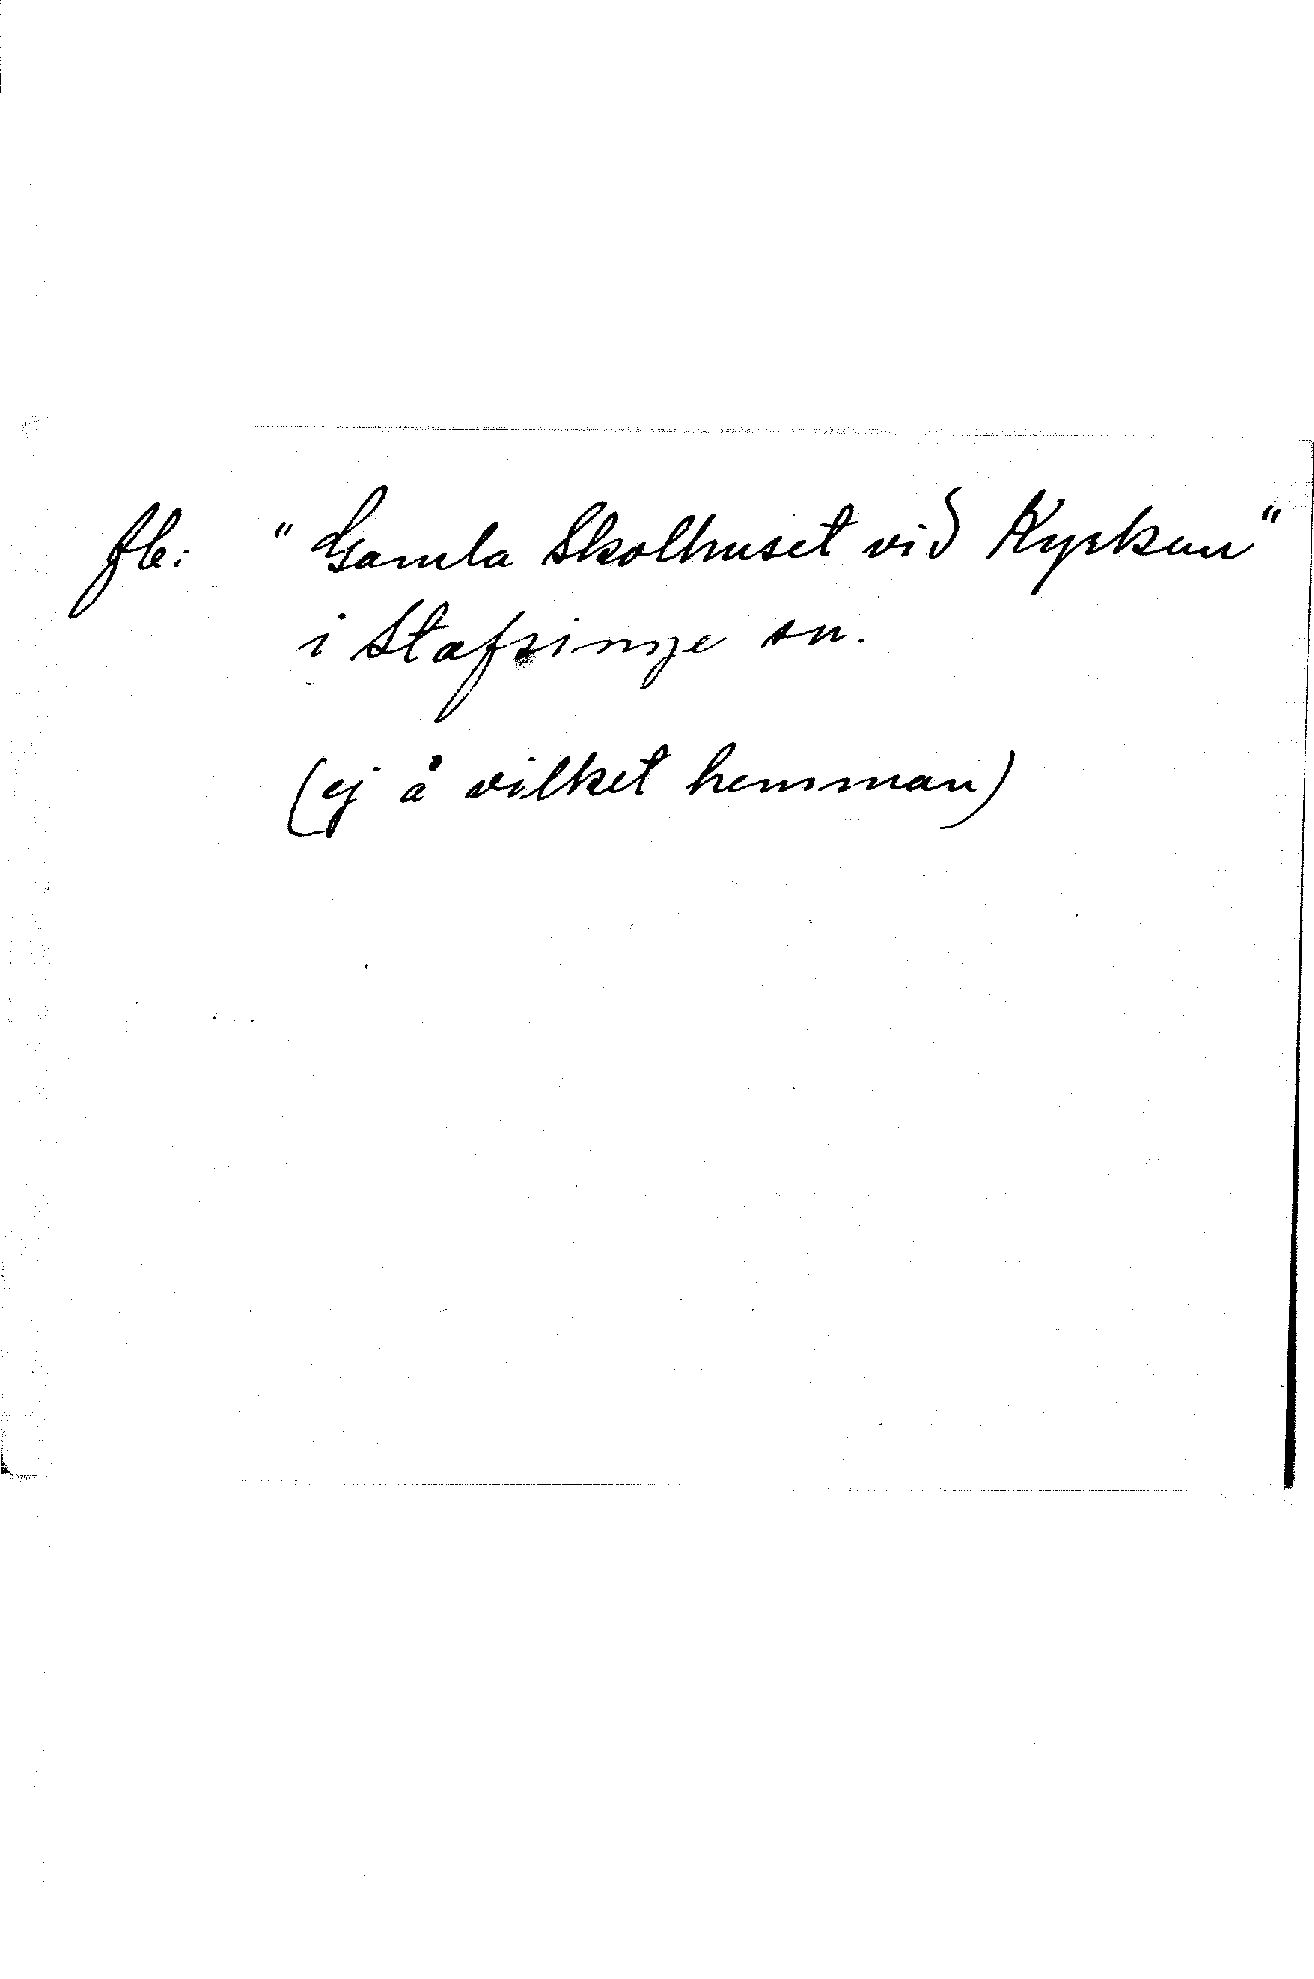 fb: "Gamla Skolhuset vid Kyrkan"
i Stafsinge sn.
(ej å vilket hemman)